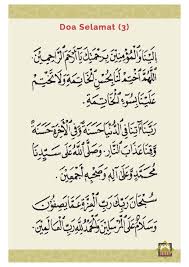 Doa Selamat (3)
إِلَيْنَا وَالْمُؤْمِنِيْنَ بِرَحْمَتِكَ يَا أَرْحَمَ الرَّاحِمِيْنَ
اَللّٰهُمَّ اخْتِمْ لَنَا بِحُسْنِ الْخَاتِمَةِ وَلَا تَخْتِمْ
عَلَيْنَا بِسُوْءِ الْخَاتِمَةِ.
رَبَّنَا آتِنَا فِي الدُّنْيَا حَسَنَةً وَفِي الْآخِرَةِ حَسَنَةً
وَقِنَا عَذَابَ النَّارِ. وَصَلَّى اللّٰهُ عَلَى سَيِّدِنَا
مُحَمَّدٍ وَعَلَى آلِهِ وَصَحْبِهِ أَجْمَعِيْنَ.
سُبْحَانَ رَبِّكَ رَبِّ الْعِزَّةِ عَمَّا يَصِفُوْنَ
وَسَلَامٌ عَلَى الْمُرْسَلِيْنَ وَالْحَمْدُ لِلّٰهِ رَبِّ الْعَالَمِيْنَ.